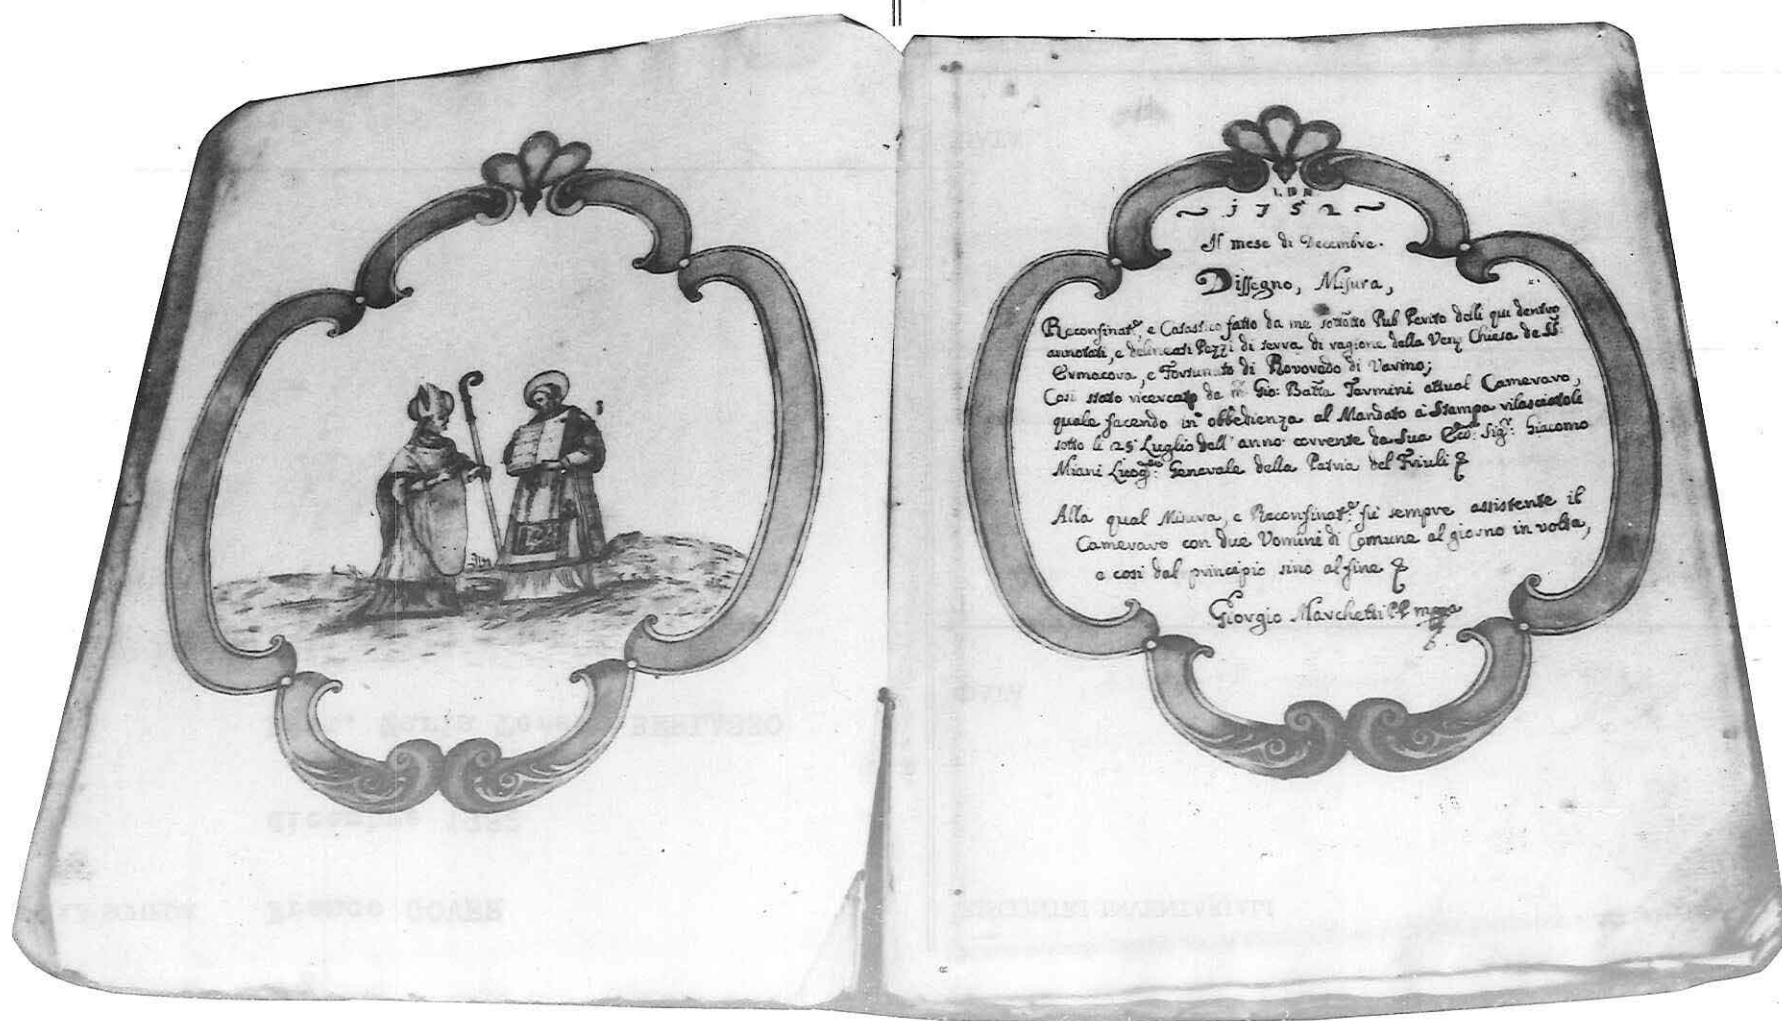 I. D. N.
~ 1752 ~
Il mese di Decembre.
Dissegno, Misura,
Reconfinat:e, e Catastico fatto da me sottotto Pub Perito delli qui dentro
annotati, e delineati Pezzi di terra di ragione della Ven: Chiesa de SS:
Ermacora, e Fortunato di Rovoredo di Varmo;
Così stato ricercato da Gio: Batta Tarmini attual Cameraro,
quale facendo in obbedienza al Mandato à Stampa rilasciatoli
sotto li 25 Luglio dell' anno corrente da Sua Ecc: Sig:r Giacomo
Miani Luog: Generale della Patria del Friuli
Alla qual Misura, e Reconfinat:e fù sempre assistente il
Cameraro con due Uomini di Comune al giorno in volta,
e così dal principio sino al fine
Giorgio Marchetti